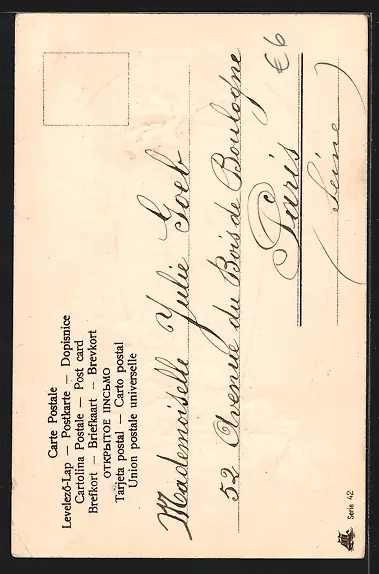 Carte Postale
Levelező-Lap — Postkarte — Dopisnice
Cartolina Postale — Post card
Brefkort — Briefkaart — Brevkort
ОТКРЫТОЕ ПИСЬМО
Tarjeta postal — Carto postal
Union postale universelle
Mademoiselle Julie Goeb
52 Avenue du Bois de Boulogne
Paris
(Seine)
€6
Serie 42